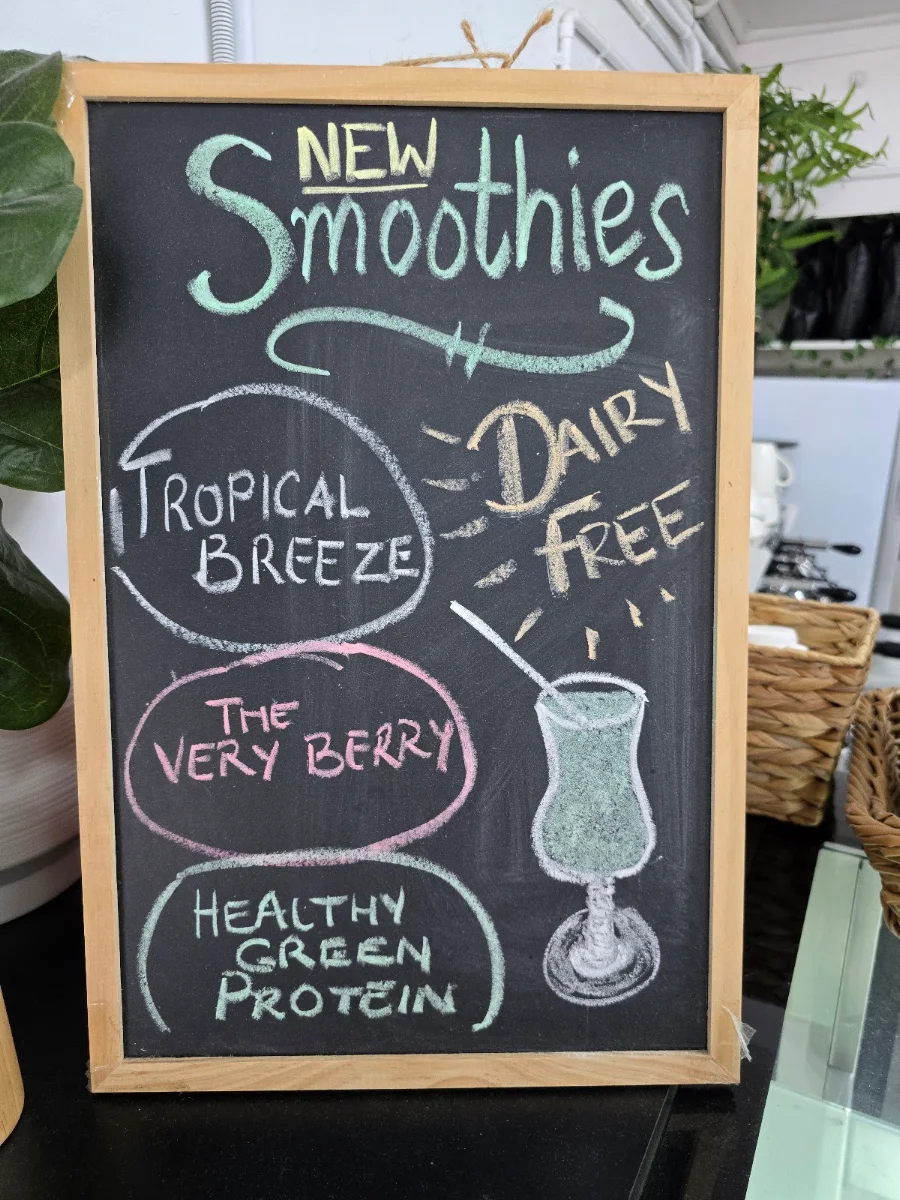 NEW
Smoothies
DAIRY
FREE
TROPICAL
BREEZE
THE
VERY BERRY
HEALTHY
GREEN
PROTEIN